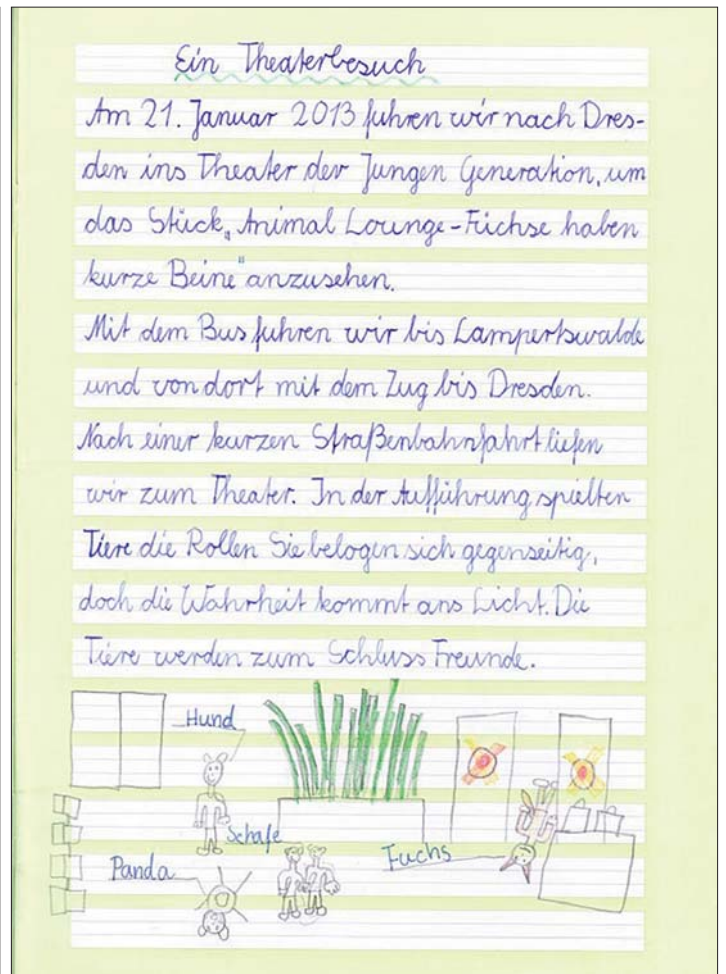 Ein Theaterbesuch
Am 21. Januar 2013 fuhren wir nach Dres-
den ins Theater der Jungen Generation, um
das Stück „Animal Lounge-Füchse haben
kurze Beine" anzusehen.
Mit dem Bus fuhren wir bis Lampertswalde
und von dort mit dem Zug bis Dresden.
Nach einer kurzen Straßenbahnfahrt liefen
wir zum Theater. In der Aufführung spielten
Tiere die Rollen Sie belogen sich gegenseitig,
doch die Wahrheit kommt ans Licht. Die
Tiere werden zum Schluss Freunde.
Hund
Schafe
Fuchs
Panda